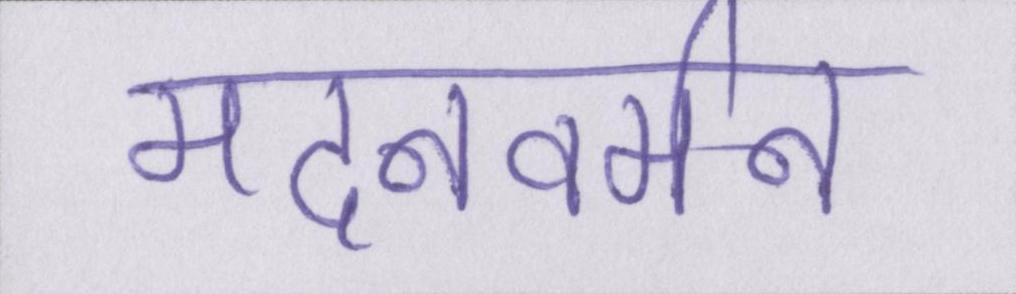 मदनवर्मन